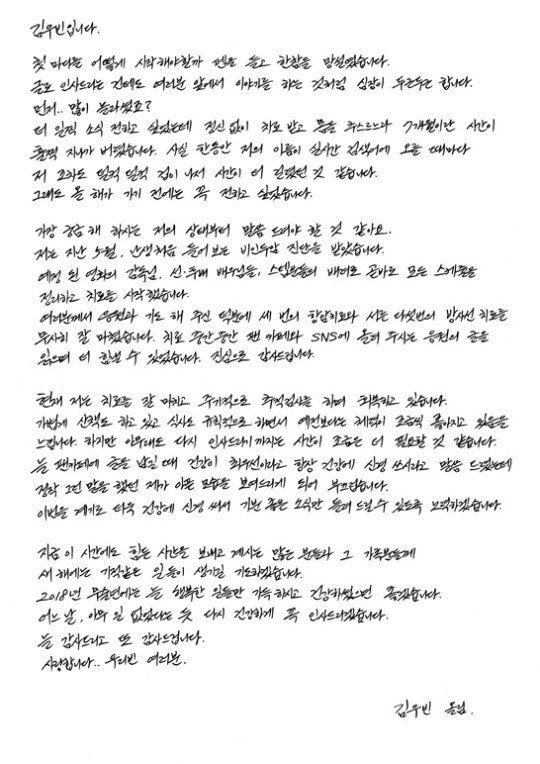 김우빈입니다.
첫 마디를 어떻게 시작해야할까 펜을 들고 한참을 망설였습니다.
글로 인사드리는 건데도 여러분 앞에서 이야기를 하는 것처럼 심장이 두근두근 합니다.
먼저.. 많이 놀라셨죠?
더 일찍 소식 전하고 싶었는데 정신 없이 치료 받고 몸을 추스르느라 7개월이란 시간이
훌쩍 지나가 버렸습니다. 사실 한동안 저의 이름이 실시간 검색어에 오를 때마다
저 조차도 덜컥 덜컥 겁이 나서 시간이 더 걸렸던 것 같습니다.
그래도 올 해가 가기 전에는 꼭 전하고 싶었습니다.
가장 궁금해 하시는 저의 상태부터 말씀 드려야 할 것 같아요.
저는 지난 5월, 난생처음 들어보는 비인두암 진단을 받았습니다.
예정 된 영화의 감독님, 선·후배 배우님들, 스텝분들의 배려로 곧바로 모든 스케줄을
정리하고 치료를 시작했습니다.
여러분께서 응원과 기도 해 주신 덕분에 세 번의 항암치료와 서른 다섯번의 방사선 치료를
무사히 잘 마쳤습니다. 치료 중간중간 팬 카페와 SNS에 올려 주시는 응원의 글을
읽으며 더 힘낼 수 있었습니다. 진심으로 감사드립니다.
현재 저는 치료를 잘 마치고 주기적으로 추적검사를 하며 회복하고 있습니다.
가볍게 산책도 하고 있고 식사도 규칙적으로 하면서 예전보다는 체력이 조금씩 좋아지고 있음을
느낍니다. 하지만 아무래도 다시 인사드리기까지는 시간이 조금은 더 필요할 것 같습니다.
늘 팬카페에 글을 남길 때 건강이 최우선이라고 항상 건강에 신경 쓰시라고 말씀 드렸는데
정작 그런 말을 했던 제가 아픈 모습을 보여드리게 되어 부끄럽습니다.
이번을 계기로 더욱 건강에 신경 써서 기분 좋은 소식만 들려 드릴 수 있도록 노력하겠습니다.
지금 이 시간에도 힘든 시간을 보내고 계시는 많은 분들과 그 가족분들께
새 해에는 기적같은 일들이 생기길 기도하겠습니다.
2018년 무술년에는 늘 행복한 일들만 가득하시고 건강하셨으면 좋겠습니다.
어느 날, 아무 일 없었다는 듯 다시 건강하게 꼭 인사드리겠습니다.
늘 감사드리고 또 감사드립니다.
사랑합니다.. 우리빈 여러분.
김우빈 올림.